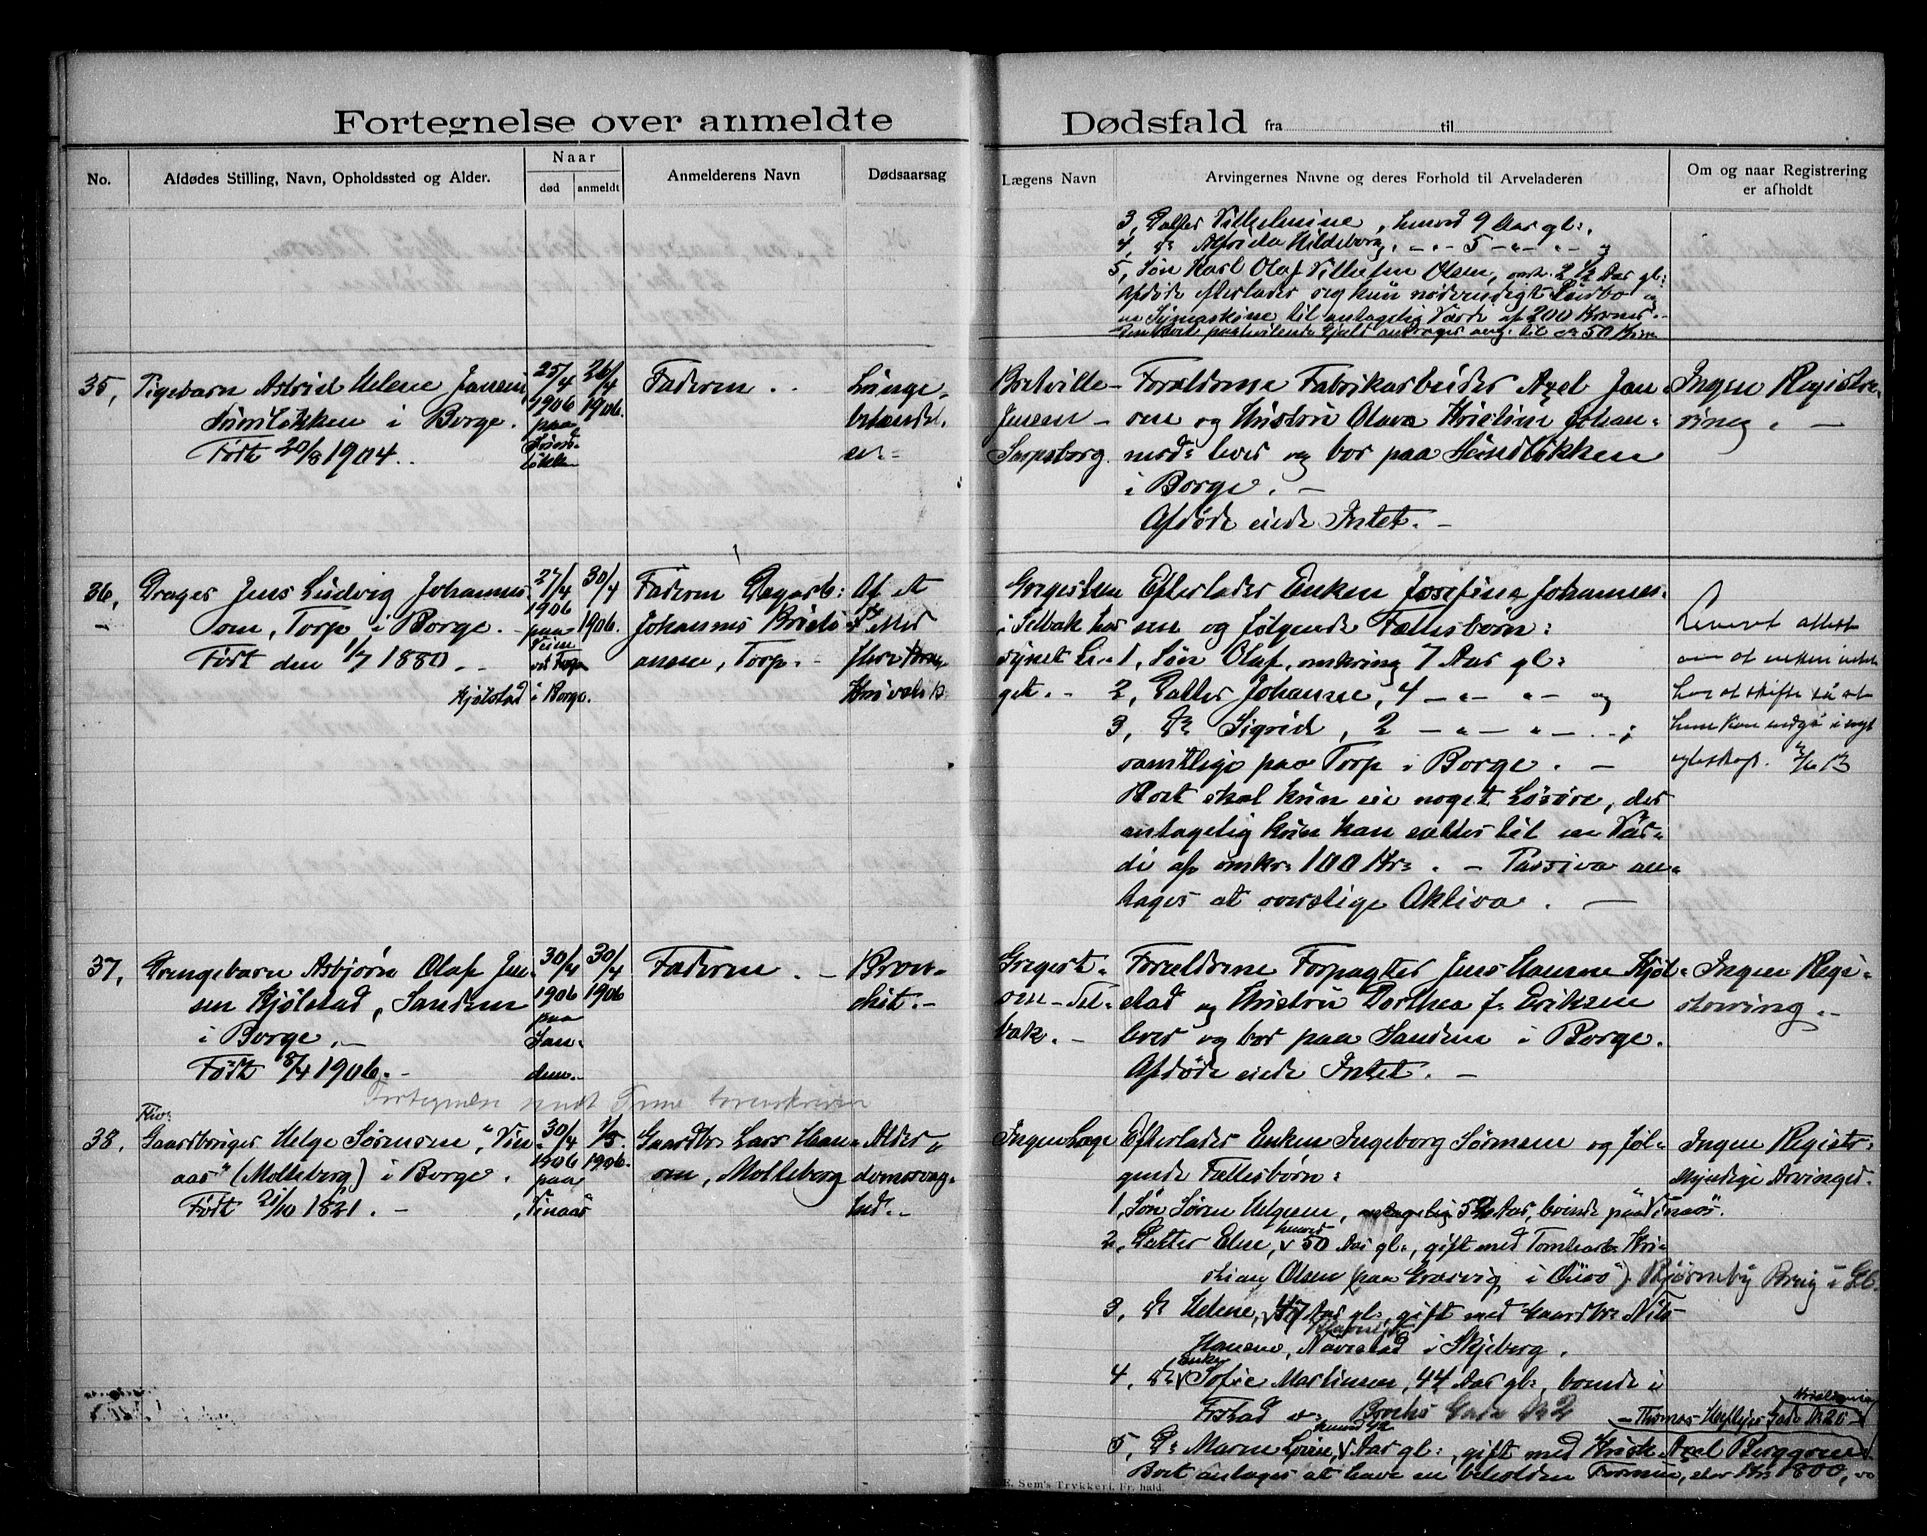 Fortegnelse over anmeldte
Dødsfald fra til
No.
Afdødes Stilling, Navn, Opholdssted og Alder.
Naar
død
anmeldt
Anmelderens Navn
Dødsaarsag
Lægens Navn
Arvingernes Navne og deres Forhold til Arveladeren
Om og naar Registrering
er afholdt
3, Datter Vilhelmine, henved 9 Aar gl:,
4, D: Alfrida Hildeborg, - " - 5 - " - " - og
5, Søn Karl Olaf Vilhelm Olsen, omtr. 2 1/2 Aar gl:
Afdøde efterlader sig kun nødvendigt Indbo og
en Symaskine til antagelig Værdi af 200 Kroner. -
til ca 50 Kron
35,
Pigebarn Astrid Helene Jansen,
i Borge.
Født 20/8 1904.
25/4
1906
paa
26/4
1906.
Faderen.
Lunge-
betændel-
se.
Bretville-
Jensen -
Sarpsborg.
Forældrene Fabrikarbeider Axel Jan-
sen og Hustru Olava Kristine Johan-
lever og bor paa Hundløkken
i Borge. -
Afdøde eiede Intet. -
Ingen Registre-
ring. -
36,
Drager Jens Ludvig Johannes-
sen, Torp i Borge. -
Født den 1/7 1880. -
27/4
1906
paa
Kjølstad i Borge.
30/4
1906.
Faderen Dagarb:
Johannes Kristi-
ansen, Torp. -
Af et
Gregersen
i Selbak har
synet Li-
get. -
Efterlader Enken Josefine Johannes-
sen og følgende Fællesbørn:
1, Søn Olaf, omkring 7 Aar gl:
2, Datter Johanne, 4 - " - " - og
3, D: Sigrid, 2 - " - " - ;
samtlige paa Torp i Borge. -
Boet skal kun eie noget Løsøre, der
antagelig kun kan sættes til en Vær-
di af omkr: 100 Kr:. - Passiva an-
tages at overstige Aktiva. -
Levert attest
om at enken intet
har at skifte så at
hun kan indgå i nyt
egteskap.
37,
Drengebarn Asbjørn Olaf Jen-
sen Kjølstad, Sanden
i Borge. -
Født 8/4 1906. -
30/4
1906
paa
San-
den. -
30/4
1906
Faderen. -
Bron-
chit. -
Gregert-
sen - Sel-
bak. -
Forældrene Forpagter Jens Hansen Kjøl-
stad og Hustru Dorthea f. Eriksen
lever og bor paa Sanden i Borge.
Afdøde eiede Intet. -
Ingen Regi-
strering. -
38.
Gaardbruger Helge Sørensen, "Vin-
aas" (Molteberg) i Borge.
Født 21/10 1821. -
30/4
1906
paa
Vinaas
1/5
1906.
Gaardbr: Lars Han-
sen, Molteberg
Alder-
domssvag-
hed. -
Ingen Læge
Efterlader Enken Ingeborg Sørensen og føl-
gende Fællesbørn:
1, Søn Søren Helgesen, antagelig 52 Aar, boende paa Vinaas.
2, Datter Else, henved 50 Aar gl:, gift med Tomtearb: Kri-
stian Olsen (paa Græsvig i Onsø)
3, D: Helene, 47 Aar gl:, gift med Gaardbr: Nils
Hansen, Navestad i Skjeberg.
4, D: Enke Sofie Martinsen, 44 Aar gl:, boende i
F:stad
- Thomas Heftyes Gade No 26 -
5, D: Maren Lovise, henved 42 Aar gl:, gift med Axel Berggren
Boet antages at have en beholden Formue, stor Kr: 1800,
Ingen Registr:
Myndige Arvinger.
E. Sem's Trykkeri, Fr. hald.